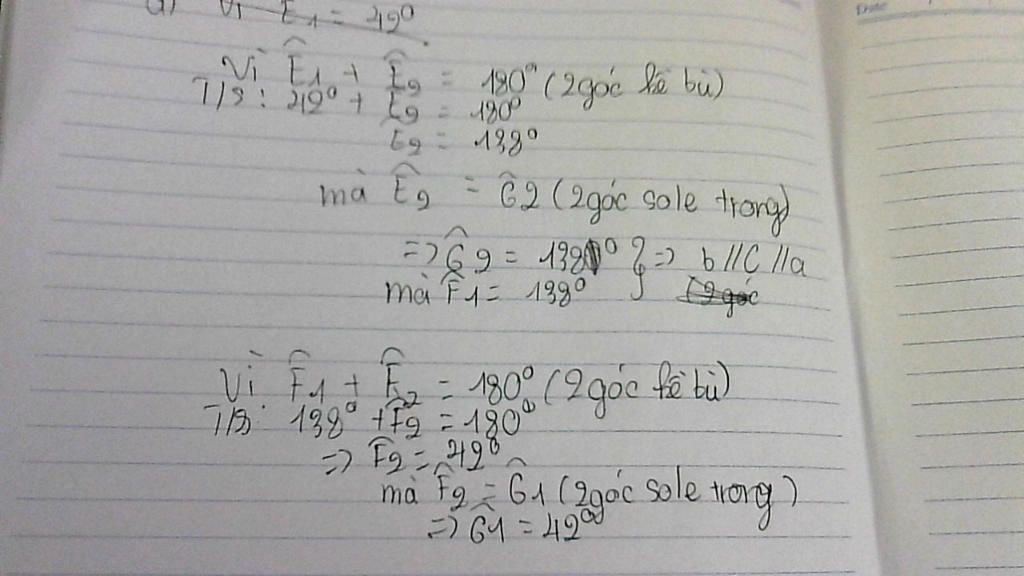 Vì Ê1 = 42°
Vì Ê1 + Ê2 = 180° (2 góc kề bù)
T/S: 42° + E2 = 180°
E2 = 138°
mà Ê2 = Ĝ2 (2 góc sole trong)
=> Ĝ2 = 138° } => b // C // a
mà F̂1 = 138°
Vì F̂1 + F̂2 = 180° (2 góc kề bù)
T/S: 138° + F̂2 = 180°
=> F̂2 = 42°
mà F̂2 = Ĝ1 (2 góc sole trong)
=> Ĝ1 = 42°